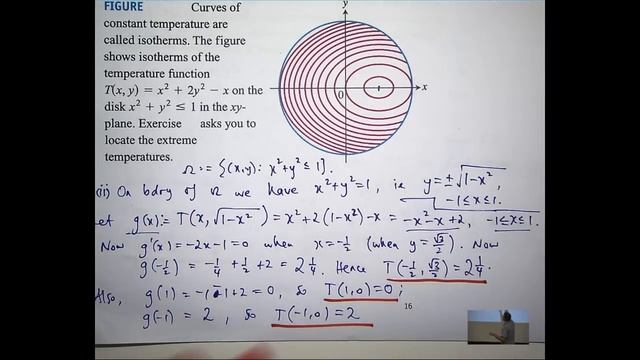 FIGURE Curves of
constant temperature are
called isotherms. The figure
shows isotherms of the
temperature function
T(x, y) = x² + 2y² − x on the
disk x² + y² ≤ 1 in the xy-
plane. Exercise asks you to
locate the extreme
temperatures.
y
x
0
Ω := {(x,y): x²+y² ≤ 1}.
(ii) On bdry of Ω we have x²+y²=1, ie y=±√(1−x²),
−1≤x≤1.
Let g(x):= T(x, √(1−x²)) = x²+2(1−x²)−x = −x²−x+2, −1≤x≤1.
Now g'(x) = −2x−1 = 0 when x=−½ (when y=√3/2). Now
g(−½) = −¼ + ½ + 2 = 2¼. Hence T(−½, √3/2) = 2¼.
Also, g(1) = −1−1+2 = 0, so T(1,0)=0;
g(−1) = 2, so T(−1,0) = 2
16